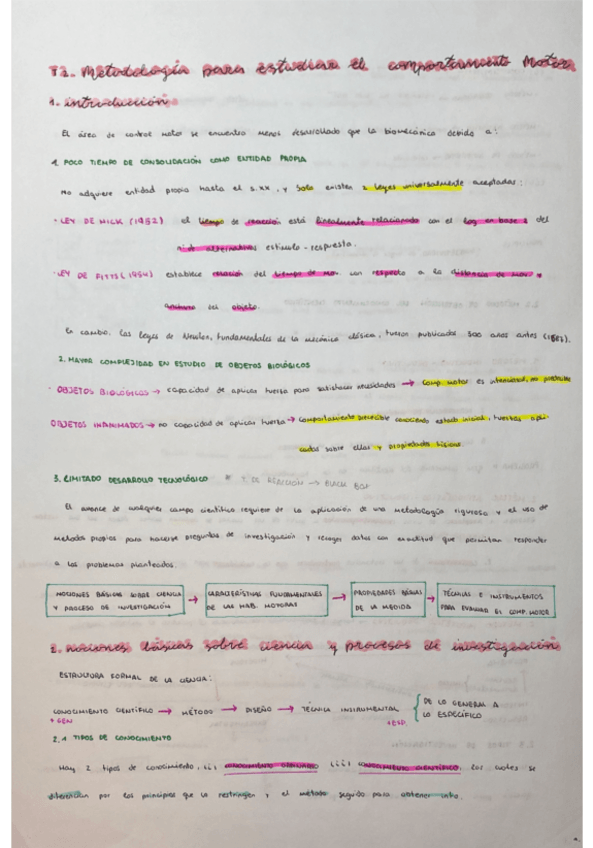 T2. Metodología para estudiar el comportamiento Motor
1. introducción
El área de control motor se encuentra menos desarrollado que la biomecánica debido a:
1. POCO TIEMPO DE CONSOLIDACIÓN COMO ENTIDAD PROPIA
No adquiere entidad propia hasta el s.XX, y solo existen 2 leyes universalmente aceptadas:
· LEY DE HICK (1952) el tiempo de reacción está linealmente relacionado con el log en base 2 del
nº de alternativas estímulo-respuesta.
· LEY DE FITTS (1954) establece relación del tiempo de mov. con respecto a la distancia de mov. y
anchura del objeto.
En cambio, las leyes de Newton, fundamentales de la mecánica clásica, fueron publicadas 300 años antes (1687).
2. MAYOR COMPLEJIDAD EN ESTUDIO DE OBJETOS BIOLÓGICOS
· OBJETOS BIOLÓGICOS → capacidad de aplicar fuerza para satisfacer necesidades → comp. motor es intencional, no predecible
OBJETOS INANIMADOS → no capacidad de aplicar fuerza → comportamiento predecible conociendo estado inicial, fuerzas apli-
cadas sobre ellas y propiedades físicas.
3. LIMITADO DESARROLLO TECNOLÓGICO * T. DE REACCIÓN → BLACK BOX
El avance de cualquier campo científico requiere de la aplicación de una metodología rigurosa y el uso de
metodos propios para hacerse preguntas de investigación y recoger datos con exactitud que permitan responder
a los problemas planteados.
NOCIONES BÁSICAS SOBRE CIENCIA Y PROCESO DE INVESTIGACIÓN → CARACTERÍSTICAS FUNDAMENTALES DE LAS HAB. MOTORAS → PROPIEDADES BÁSICAS DE LA MEDIDA → TÉCNICAS E INSTRUMENTOS PARA EVALUAR EL COMP. MOTOR
2. nociones básicas sobre ciencia y procesos de investigación
ESTRUCTURA FORMAL DE LA CIENCIA:
CONOCIMIENTO CIENTÍFICO → MÉTODO → DISEÑO → TÉCNICA INSTRUMENTAL { DE LO GENERAL A LO ESPECÍFICO
+ GEN +ESP.
2.1 TIPOS DE CONOCIMIENTO
Hay 2 tipos de conocimiento, (i) CONOCIMIENTO ORDINARIO (ii) CONOCIMIENTO CIENTÍFICO, los cuales se
diferencian por los principios que la restringen y el método seguido para obtener